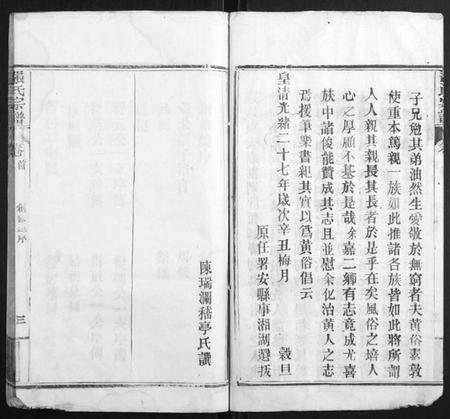 子兄勉其弟油然生愛敬於無窮者夫黃俗素敦
使重本篤親一族如此推諸各族皆如此將所謂
人人親其親長其長者於是乎在矣風俗之培人
心之厚願不基於是哉余嘉二鄉有志竟成尤喜
族中諸俊能贊成其志且並慰余化治黃人之志
焉援筆樂書紀其實以為黃俗倡云
皇清光緒二十七年歲次辛丑梅月 穀旦
原任署安縣事湘湖選拔
陳瑞瀾嵇亭氏譔
張氏宗譜 卷首 三